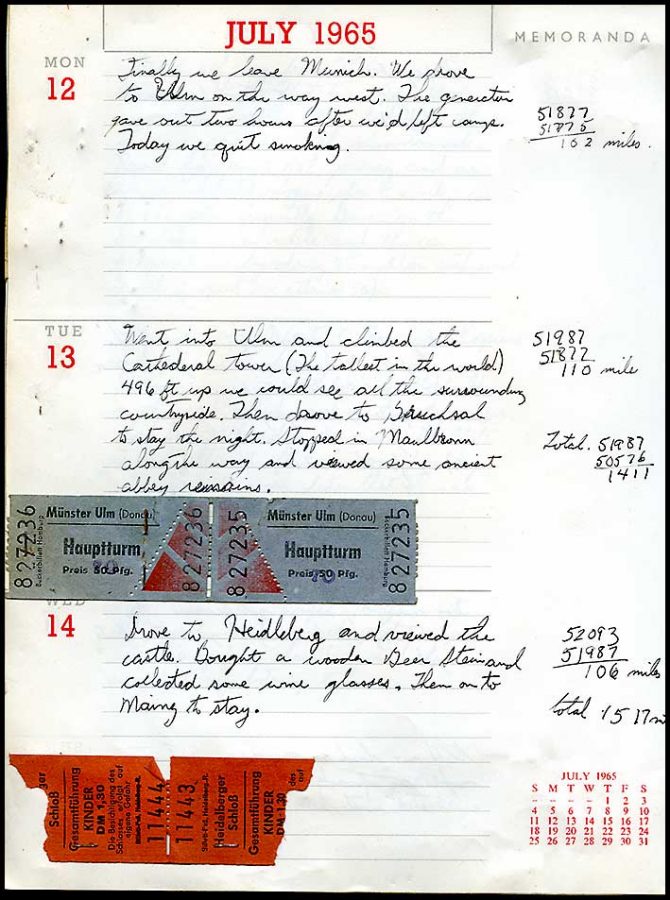 JULY 1965
MEMORANDA
MON
12
Finally we leave Munich. We drove
to Ulm on the way west. The generator
gave out two hours after we'd left camp.
Today we quit smoking.
51877
51775
102 miles.
TUE
13
Went into Ulm and climbed the
Cathederal tower (The tallest in the world)
496 ft up we could see all the surrounding
countryside. Then drove to Bruchsal
to stay the night. Stopped in Maulbronn
along the way and viewed some ancient
abbey remains.
51987
51877
110 mile
Total. 51987
50576
1411
827236
Münster Ulm (Donau)
Hauptturm
Preis 50 Pfg.
70
827236
827235
Münster Ulm (Donau)
Hauptturm
Preis 50 Pfg.
70
827235
WED
14
Drove to Heidleberg and viewed the
castle. Bought a wooden Beer Stein and
collected some wine glasses. Then on to
Mainz to stay.
52093
51987
106 miles
total 1517 m
er
Schloß
Gesamtführung
KINDER
DM 1,30
Die Besichtigung des
Schlosses erfolgt auf
eigene Gefahr
11444
11443
Heidelberger
Schloß
Gesamtführung
KINDER
DM 1.30
des
auf
JULY 1965
S M T W T F S
– – – – 1 2 3
4 5 6 7 8 9 10
11 12 13 14 15 16 17
18 19 20 21 22 23 24
25 26 27 28 29 30 31